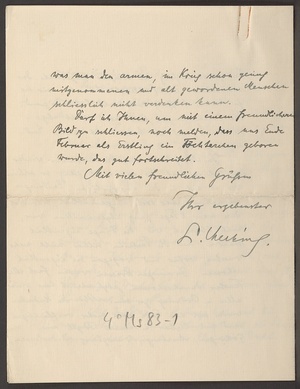 was man den armen, im Krieg schon genug
mitgenommenen und alt gewordenen Menschen
schliesslich nicht verdenken kann.
Darf ich Ihnen, um mit einem freundlicheren
Bild zu schliessen, noch melden, dass uns Ende
Februar als Erstling ein Töchterchen geboren
wurde, das gut fortschreitet.
Mit vielen freundlichen Grüßen
Ihr ergebenster
4° Ms 83-1